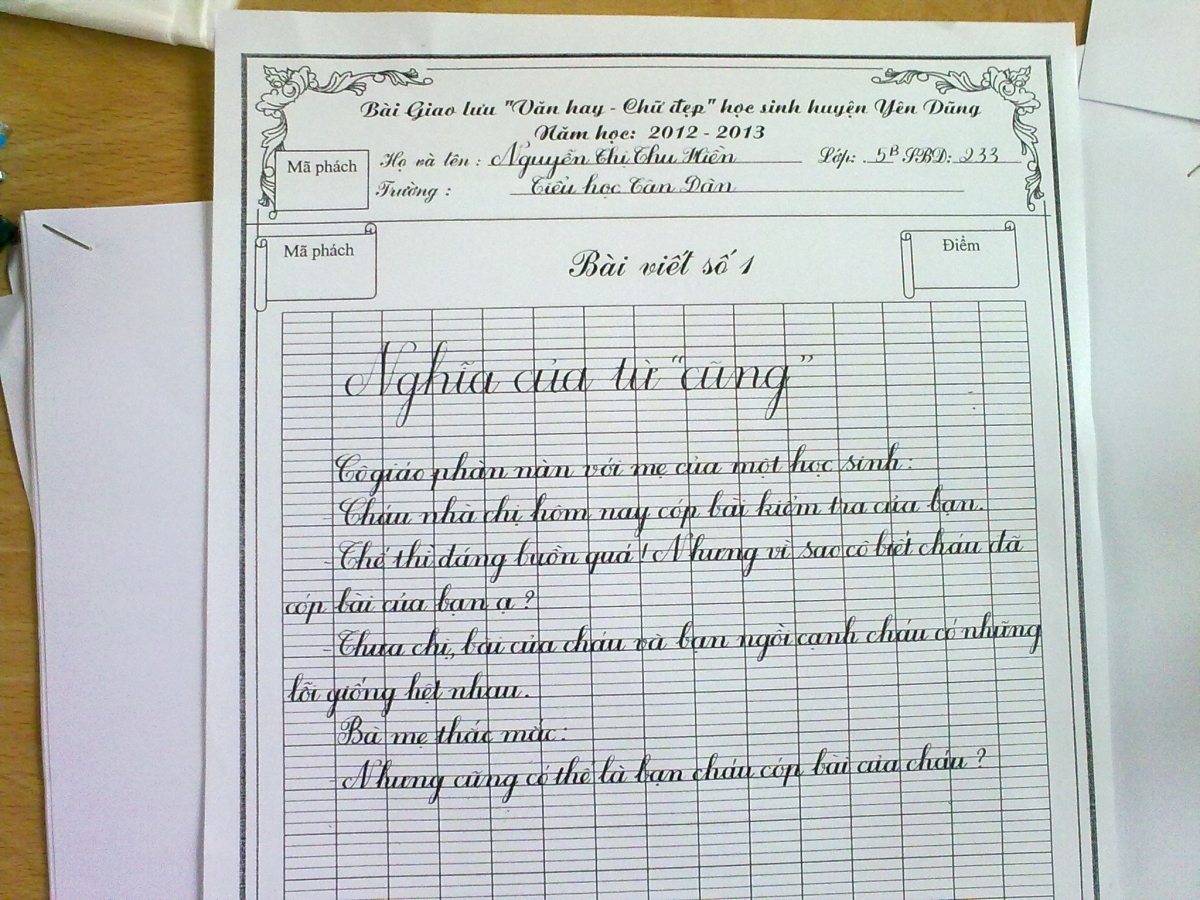 Bài Giao lưu "Văn hay - Chữ đẹp" học sinh huyện Yên Dũng
Năm học: 2012 - 2013
Mã phách
Họ và tên : Nguyễn Thị Thu Hiền Lớp: 5B SBD: 233
Trường : Tiểu học Tân Dân
Mã phách
Bài viết số 1
Điểm
Nghĩa của từ "cũng"
Cô giáo phàn nàn với mẹ của một học sinh:
- Cháu nhà chị hôm nay cóp bài kiểm tra của bạn.
- Thế thì đáng buồn quá! Nhưng vì sao cô biết cháu đã
cóp bài của bạn ạ?
- Thưa chị, bài của cháu và bạn ngồi cạnh cháu có những
lỗi giống hệt nhau.
Bà mẹ thắc mắc:
- Nhưng cũng có thể là bạn cháu cóp bài của cháu?